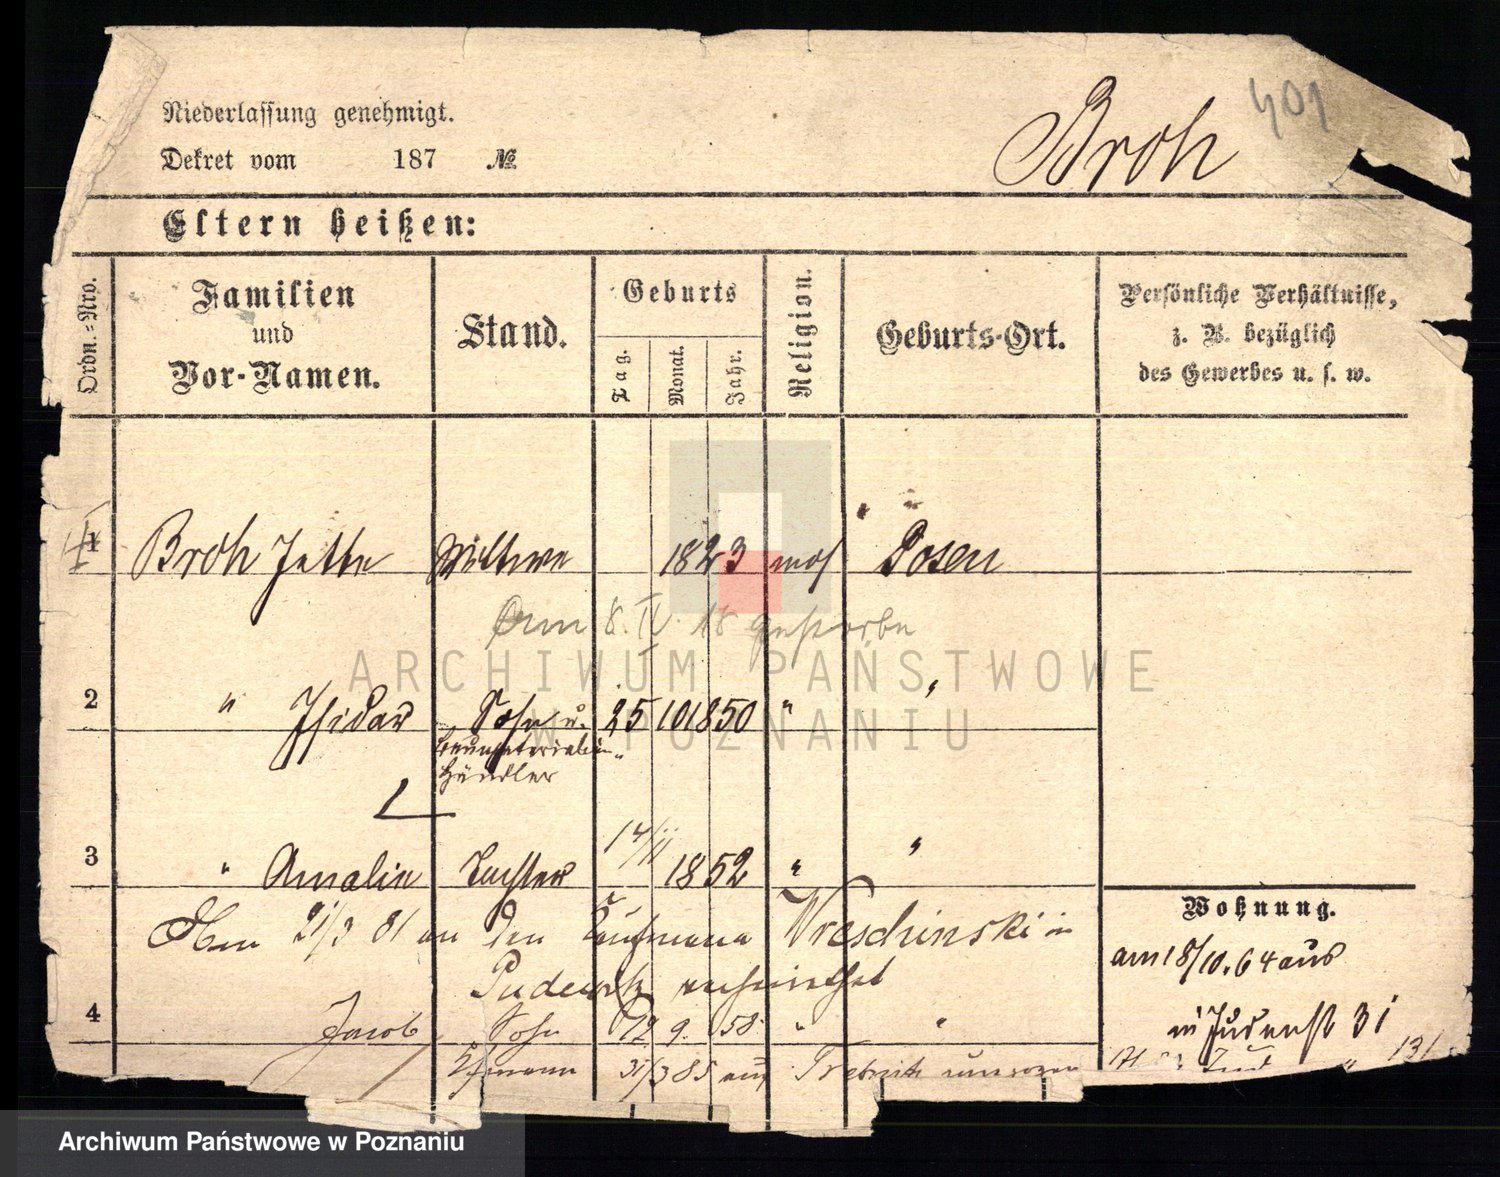 401
Broh
Niederlassung genehmigt.
Dekret vom 187 №
Eltern heißen:
Ordn.-Nro.
Familien und Vor-Namen.
Stand.
Geburts
Tag.
Monat.
Jahr.
Religion.
Geburts-Ort.
Persönliche Verhältnisse,
z. B. bezüglich
des Gewerbes u. s. w.
1 Broh Jette Wittwe 1823 mos Posen
Am 8. IV. 18 gestorben
2 " Isidor Sohn u. 25 10 1850 " "
Baumaterialien
Händler
3 " Amalie Tochter 14/11 1852 " "
Am 21/3 81 an den Kaufmann Wreschinski in
Pudewitz verheirathet
4 Jacob Sohn 12 9. 58 " "
31/3 85 aus
Wohnung.
am 18/10. 64 aus
in Judenst 31
ARCHIWUM PAŃSTWOWE
W POZNANIU
Archiwum Państwowe w Poznaniu